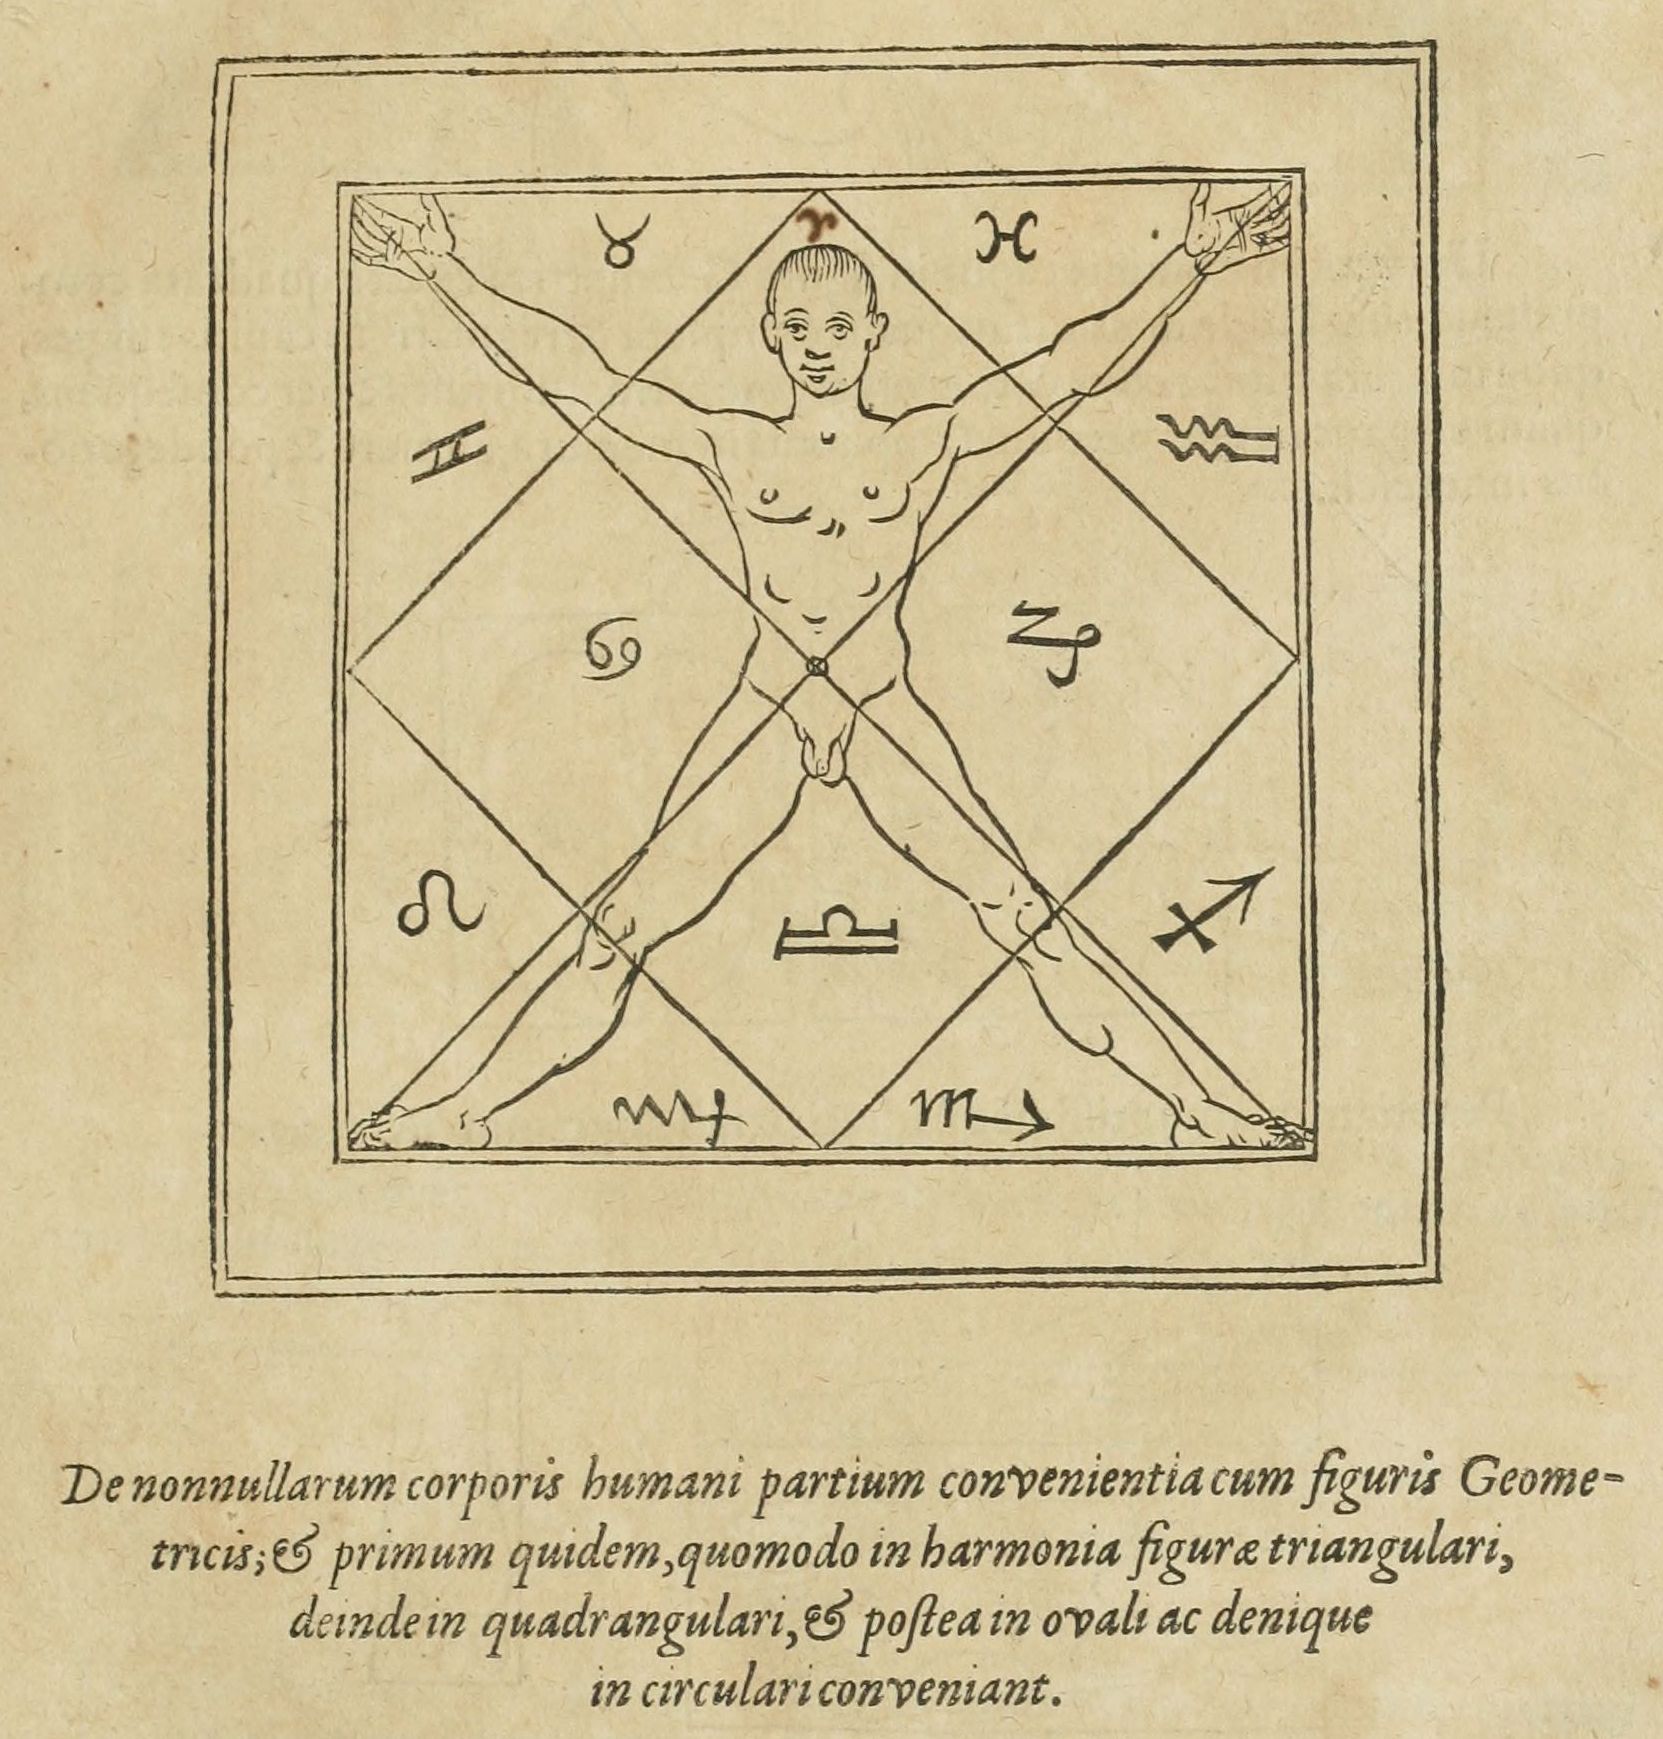 ♈
♉ ♓
♊ ♒
♋ ♑
♌ ♎ ♐
♍ ♏
De nonnullarum corporis humani partium convenientia cum figuris Geome-
tricis; & primum quidem, quomodo in harmonia figuræ triangulari,
deinde in quadrangulari, & poſtea in ovali ac denique
in circulari conveniant.